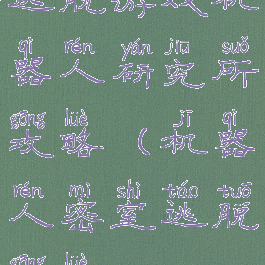 逃脱游戏机
qì rén yán jiū suǒ
器人研究所
gōng lüè jī qì
攻略(机器
rén mì shì táo tuō
人密室逃脱
gōng lüè